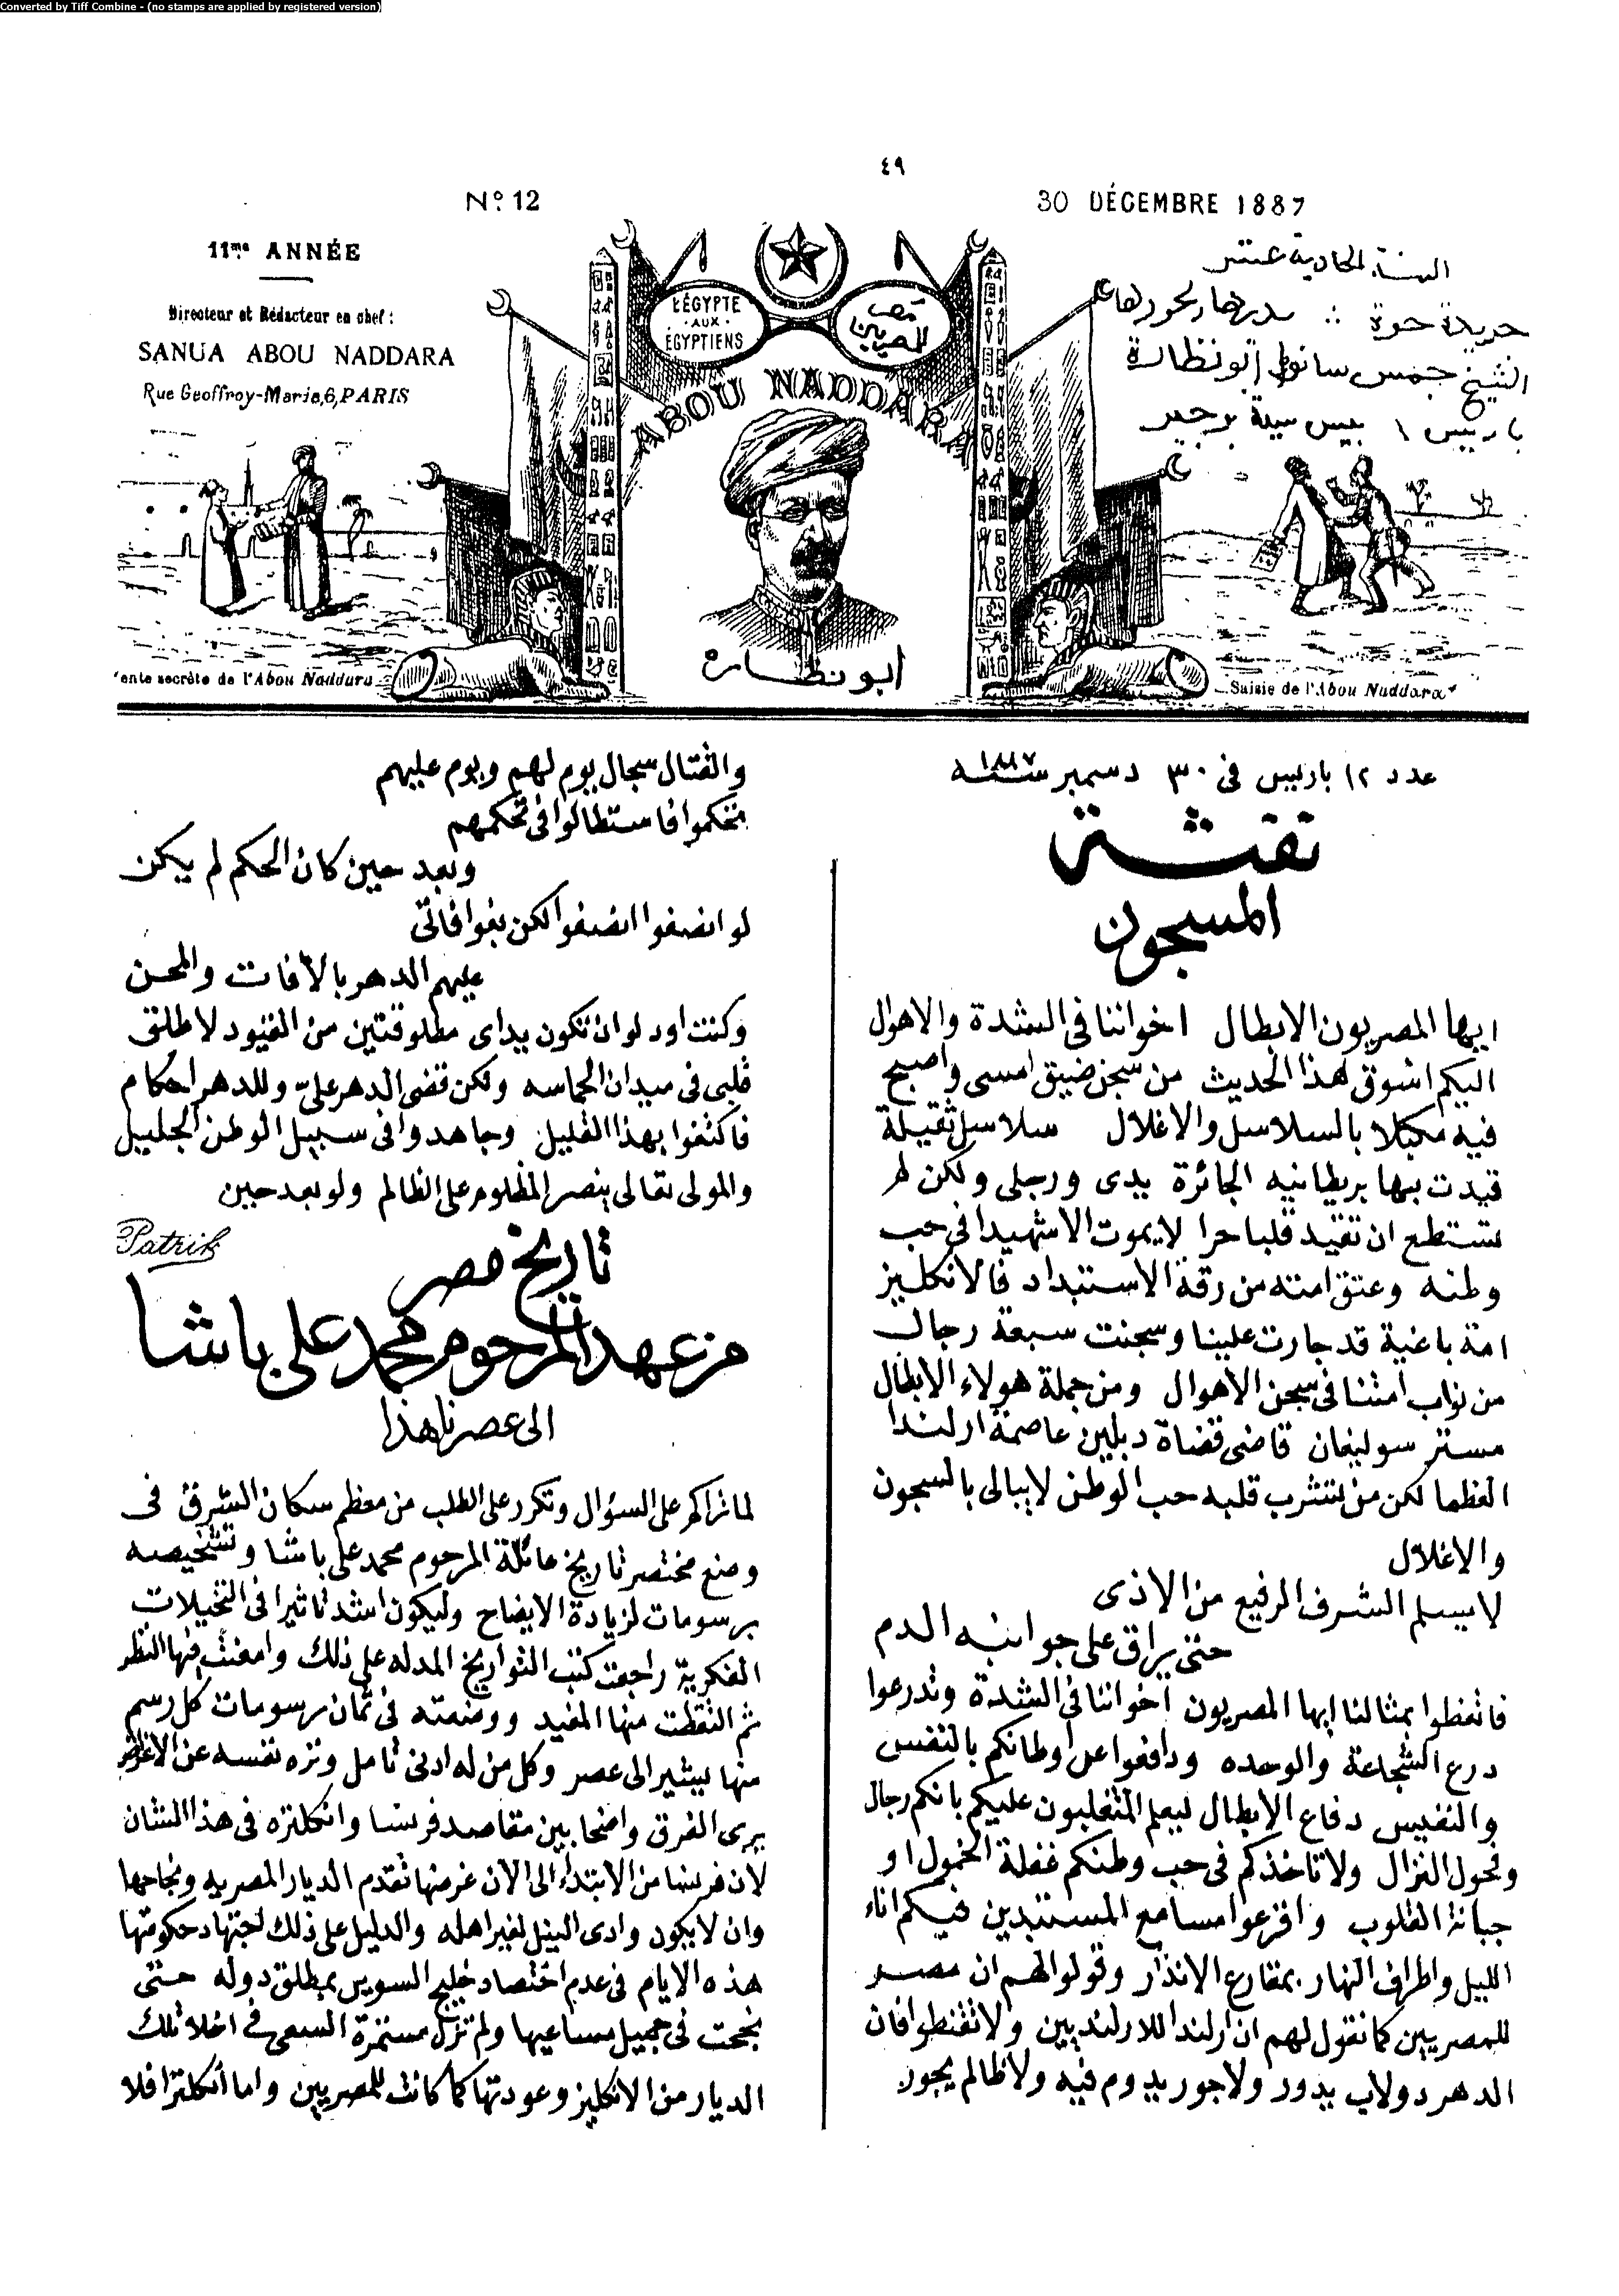 Converted by Tiff Combine - (no stamps are applied by registered version)
٤٩
Nº 12
30 DÉCEMBRE 1887
11me ANNÉE
Directeur et Rédacteur en chef:
SANUA ABOU NADDARA
Rue Geoffroy-Marie, 6, PARIS
L'ÉGYPTE
AUX
ÉGYPTIENS
مصر
للمصريين
ABOU NADDARA
السنة الحادية عشر
جريدة حرة ∴ مديرها ومحررها
الشيخ جمس سانوا ابو نظارة
باريس
ابو نظاره
ente secrète de l'Abou Naddara
Saisie de l'Abou Naddara
عدد ١٢ باريس فى ٣٠ دسمبر سنة ١٨٨٧
نفثة
المسجون
ايها المصريون الابطال اخواننا فى الشدة والاهوال
اليكم اسوق هذا الحديث من سجن ضيق امسى واصبح
فيه مكبلا بالسلاسل والاغلال سلاسل ثقيلة
قيدت بها بريطانيه الجائرة يدى ورجلى ولكن لم
تستطع ان تقيد قلبا حرا لا يموت الا شهيدا فى حب
وطنه وعتق امته من رقة الاستبداد فالانكليز
امة باغية قد جارت علينا وسجنت سبعة رجال
من نواب امتنا فى سجن الاهوال ومن جملة هولاء الابطال
مستر سوليفان قاضى قضاة دبلين عاصمة ارلندا
العظما لكن من يتشرب قلبه حب الوطن لا يبالى بالسجون
والاغلال
لا يسلم الشرف الرفيع من الاذى
حتى يراق على جوانبه الدم
فاتعظوا بمثالنا ايها المصريون اخواننا فى الشدة وتدرعوا
درع الشجاعة والوحده ودافعوا عن اوطانكم بالنفس
والنفيس دفاع الابطال ليعلم المتغلبون عليكم بانكم رجال
وفحول النزال ولا تاخذكم فى حب وطنكم غفلة الخمول او
جبانة القلوب واقرعوا مسامع المستبدين فيكم اناء
الليل واطراف النهار بمقارع الانذار وقولوا لهم ان مصر
للمصريين كما نقول لهم ان ارلندا للارلنديين ولا تقنطوا فان
الدهر دولاب يدور ولا جور يدوم فيه ولا ظالم يجور
والقتال سجال يوم لهم ويوم عليهم
تحكموا فاستطالوا فى تحكمهم
وبعد حين كان الحكم لم يكن
لو انصفوا انصفوا لكن بغوا فاتى
عليهم الدهر بالافات والمحن
وكنت اود لو ان تكون يداى مطلوقتين من القيود لاطلق
قلبى فى ميدان الحماسه ولكن قضى الدهر علىّ وللدهر احكام
فاكتفوا بهذا القليل وجاهدوا فى سبيل الوطن الجليل
والمولى تعالى ينصر المظلوم على الظالم ولو بعد حين
Patrik
تاريخ مصر
من عهد المرحوم محمد على باشا
الى عصرنا هذا
لما تراكم على السؤال وتكرر على الطلب من معظم سكان الشرق فى
وضع مختصر تاريخ عائلة المرحوم محمد على باشا وتشخيصه
برسومات لزيادة الايضاح وليكون اشد تاثيرا فى التخيلات
الفكرية راجعت كتب التواريخ المدله على ذلك وامعنت فيها النظر
ثم التقطت منها المفيد ووضعته فى ثمان رسومات كل رسم
منها يشير الى عصر وكل من له ادنى تامل ونزه نفسه عن الاغراض
يرى الفرق واضحا بين مقاصد فرنسا وانكلتره فى هذا الشان
لان فرنسا من الابتداء الى الان غرضها تقدم الديار المصريه ونجاحها
وان لا يكون وادى النيل لغير اهله والدليل على ذلك اجتهاد حكومتها
هذه الايام فى عدم اختصاد خليج السويس بمطلق دوله حتى
نجحت فى جميل مساعيها ولم تزل مستمرة السعى فى اخلا تلك
الديار من الانكليز وعودتها كما كانت للمصريين واما انكلترا فلا